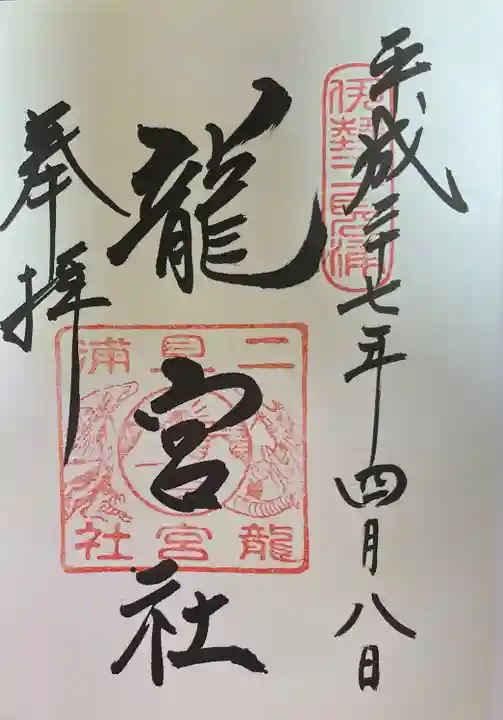 平成二十七年四月八日
伊勢二見浦
龍宮社
二見浦
龍宮社
奉拝